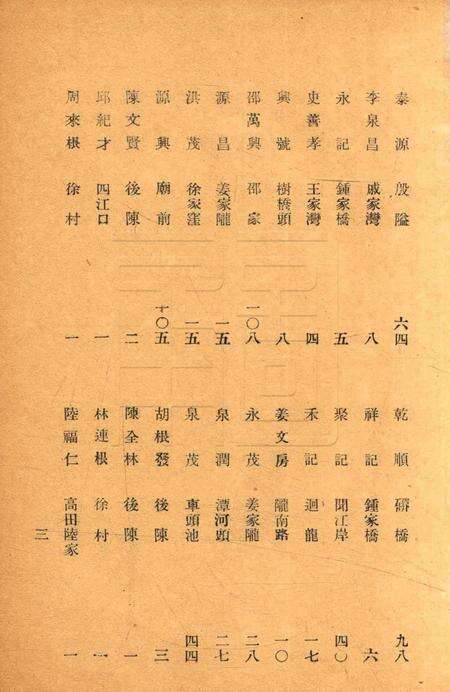 泰源 殷隘 六四
李泉昌 戚家灣 八
永記 鍾家橋 五
史善孝 王家灣 四
興號 樹橋頭 八
邵萬興 邵家 一〇八
源昌 姜家隴 一五
洪茂 徐家窪 一五
源興 廟前 十〇五
陳文賢 後陳 二
邱紀才 四江口 一
周來根 徐村 一
乾順 橋 九八
祥記 鍾家橋 六
聚記 聞江岸 四〇
禾記 迴龍 一七
姜文房 隴南路 一〇
永茂 姜家隴 二八
泉潤 潭河頭 二七
泉茂 車頭池 四四
胡根發 後陳 三
陳全林 後陳 一
林連根 徐村 一
陸福仁 高田陸家 一
三